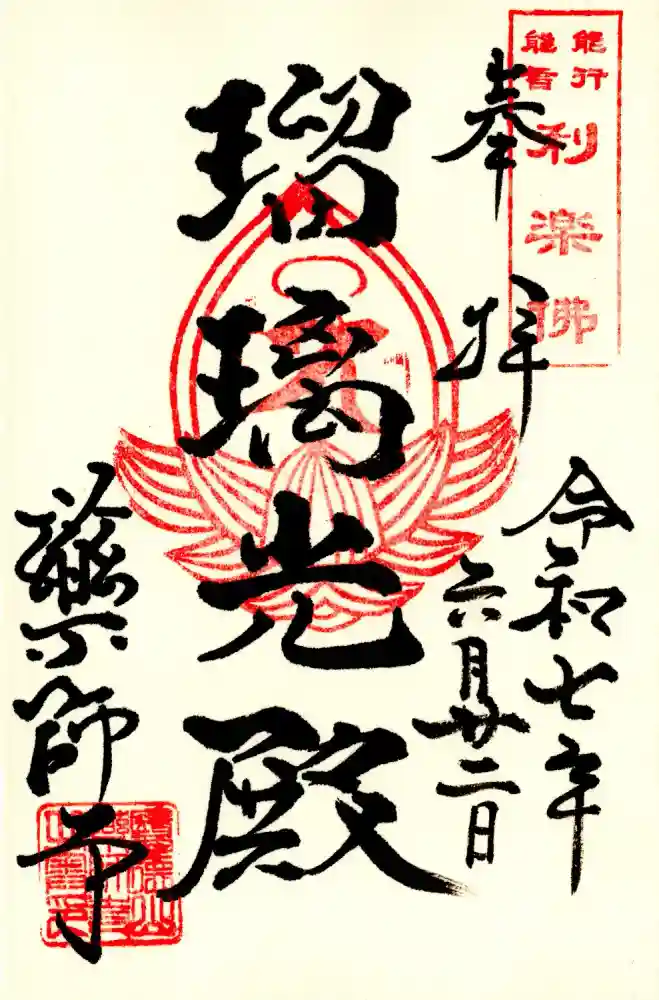 能行
利楽佛
奉拝
令和七年
六月廿二日
瑠璃光殿
藥師寺